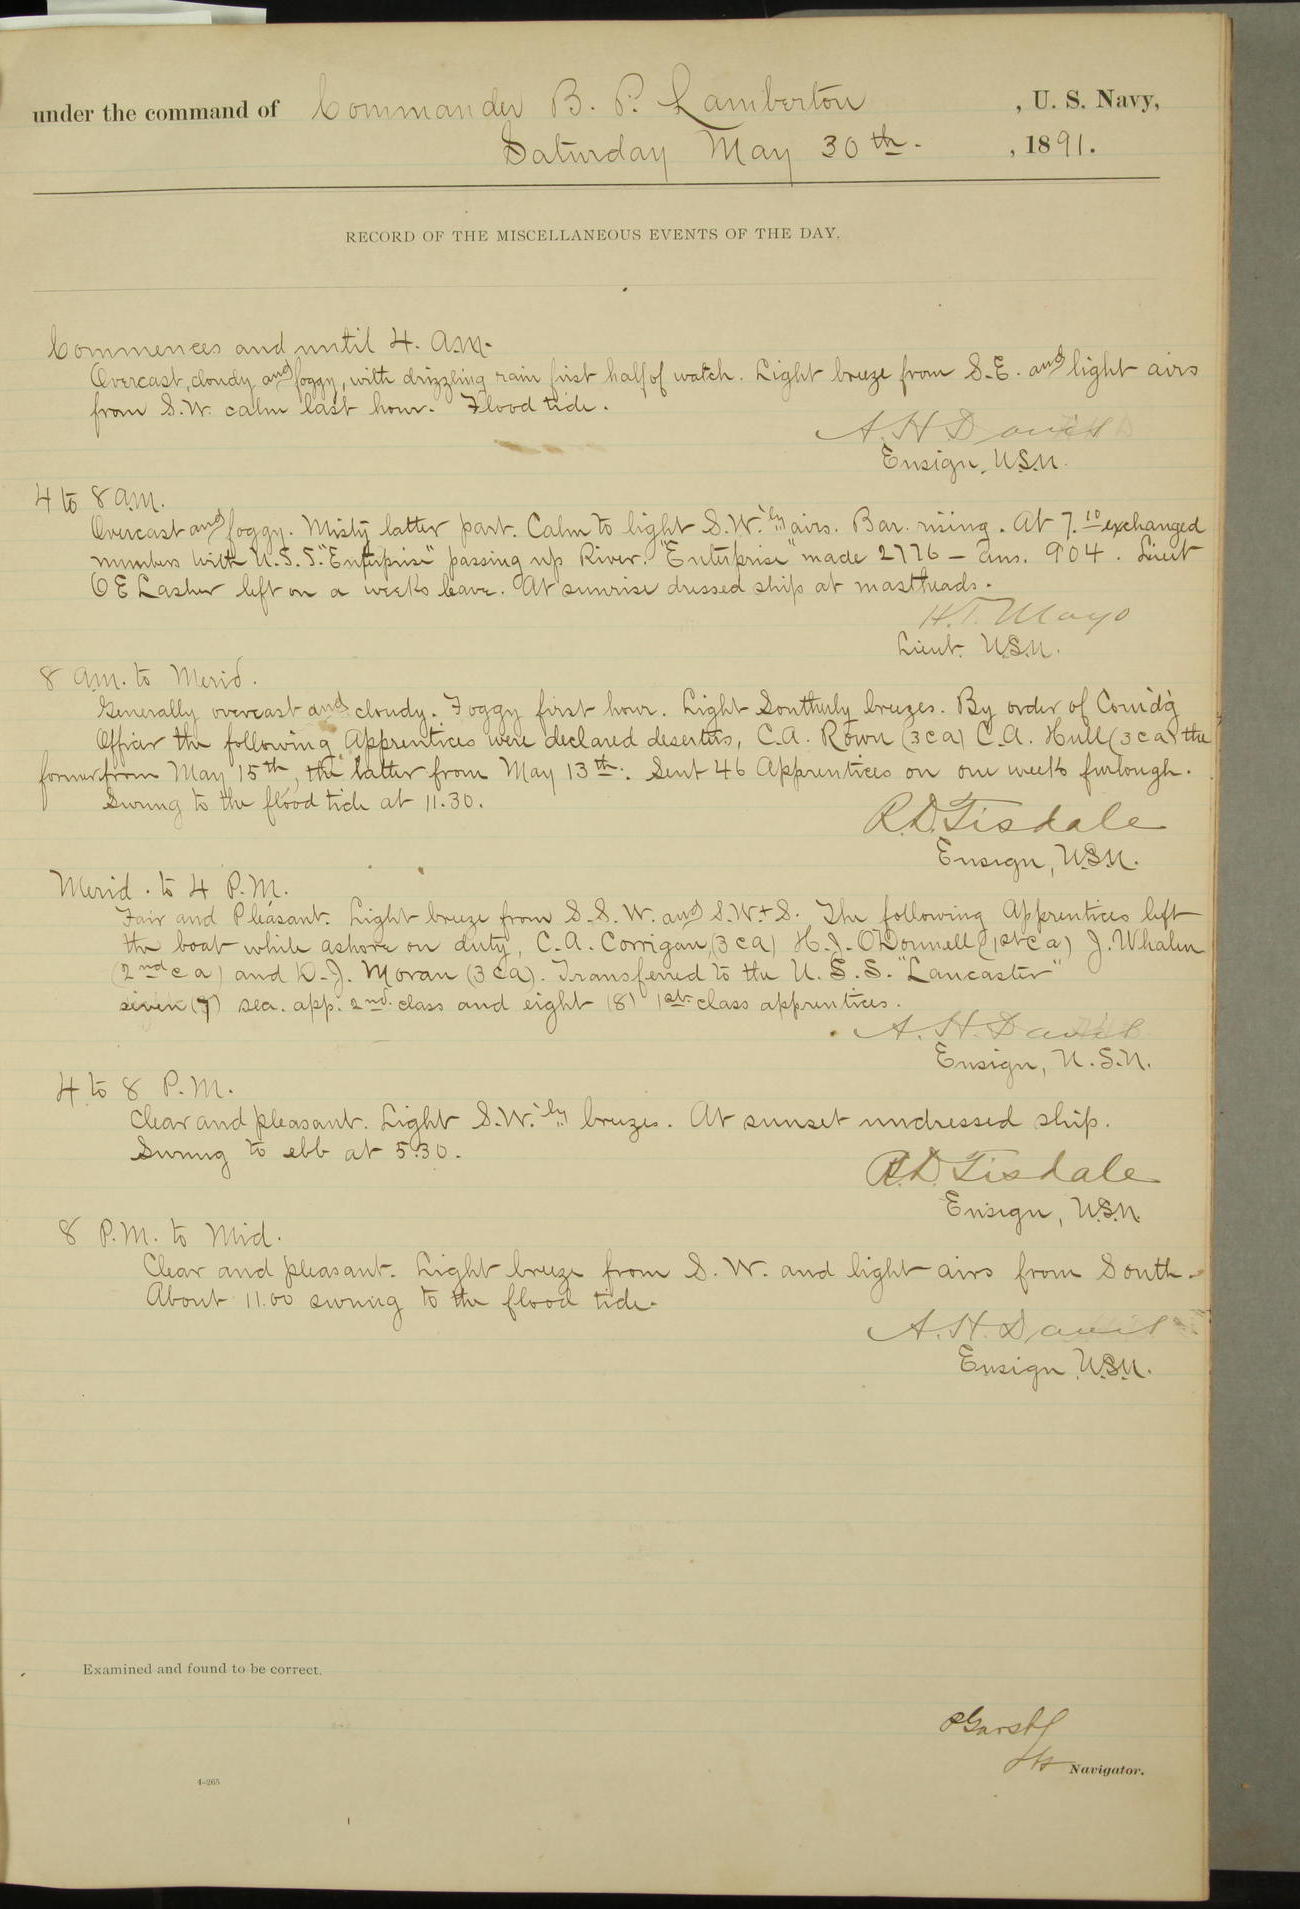 under the command of Commander B. P. Lamberton , U. S. Navy,
Saturday May 30th. , 1891.
RECORD OF THE MISCELLANEOUS EVENTS OF THE DAY.
Commences and until 4. a.m.
Overcast, cloudy and foggy, with drizzling rain first half of watch. Light breeze from S.E. and light airs
from S.W. calm last hour. Flood tide.
A. H. Davis
Ensign, U.S.N.
4 to 8 a.m.
Overcast and foggy. Misty latter part. Calm to light S.W.'ly airs. Bar. rising. At 7.10 exchanged
numbers with U.S.S. "Enterprise" passing up River. "Enterprise" made 2776 — ans. 904. Lieut
C E Lasher left on a weeks leave. At sunrise dressed ship at mastheads.
H. T. Mayo
Lieut. U.S.N.
8 a.m. to Merid.
Generally overcast and cloudy. Foggy first hour. Light Southerly breezes. By order of Com'd'g
Officer the following Apprentices were declared deserters, C.A. Rown (3 c a) C.A. Hull (3 c a) the
former from May 15th, the latter from May 13th. Sent 46 Apprentices on one weeks furlough.
Swung to the flood tide at 11.30.
R. D. Tisdale
Ensign, U.S.N.
Merid. to 4 P.M.
Fair and Pleasant. Light breeze from S.S.W. and S.W. + S. The following Apprentices left
the boat while ashore on duty, C. A. Corrigan (3 c a) H. J. O'Donnell (1st c a) J. Whalen
(2nd c a) and D. J. Moran (3 c a). Transferred to the U. S. S. "Lancaster"
seven (7) sea. app. 2nd. class and eight (8) 1st. class apprentices.
A. H. Davis
Ensign, U.S.N.
4 to 8 P.M.
Clear and pleasant. Light S.W.'ly breezes. At sunset undressed ship.
Swung to ebb at 5.30.
R. D. Tisdale
Ensign, U.S.N.
8 P.M. to Mid.
Clear and pleasant. Light breeze from S. W. and light airs from South.
About 11.00 swung to the flood tide.
A. H. Davis
Ensign U.S.N.
Examined and found to be correct.
P Garst
Navigator.
4–265